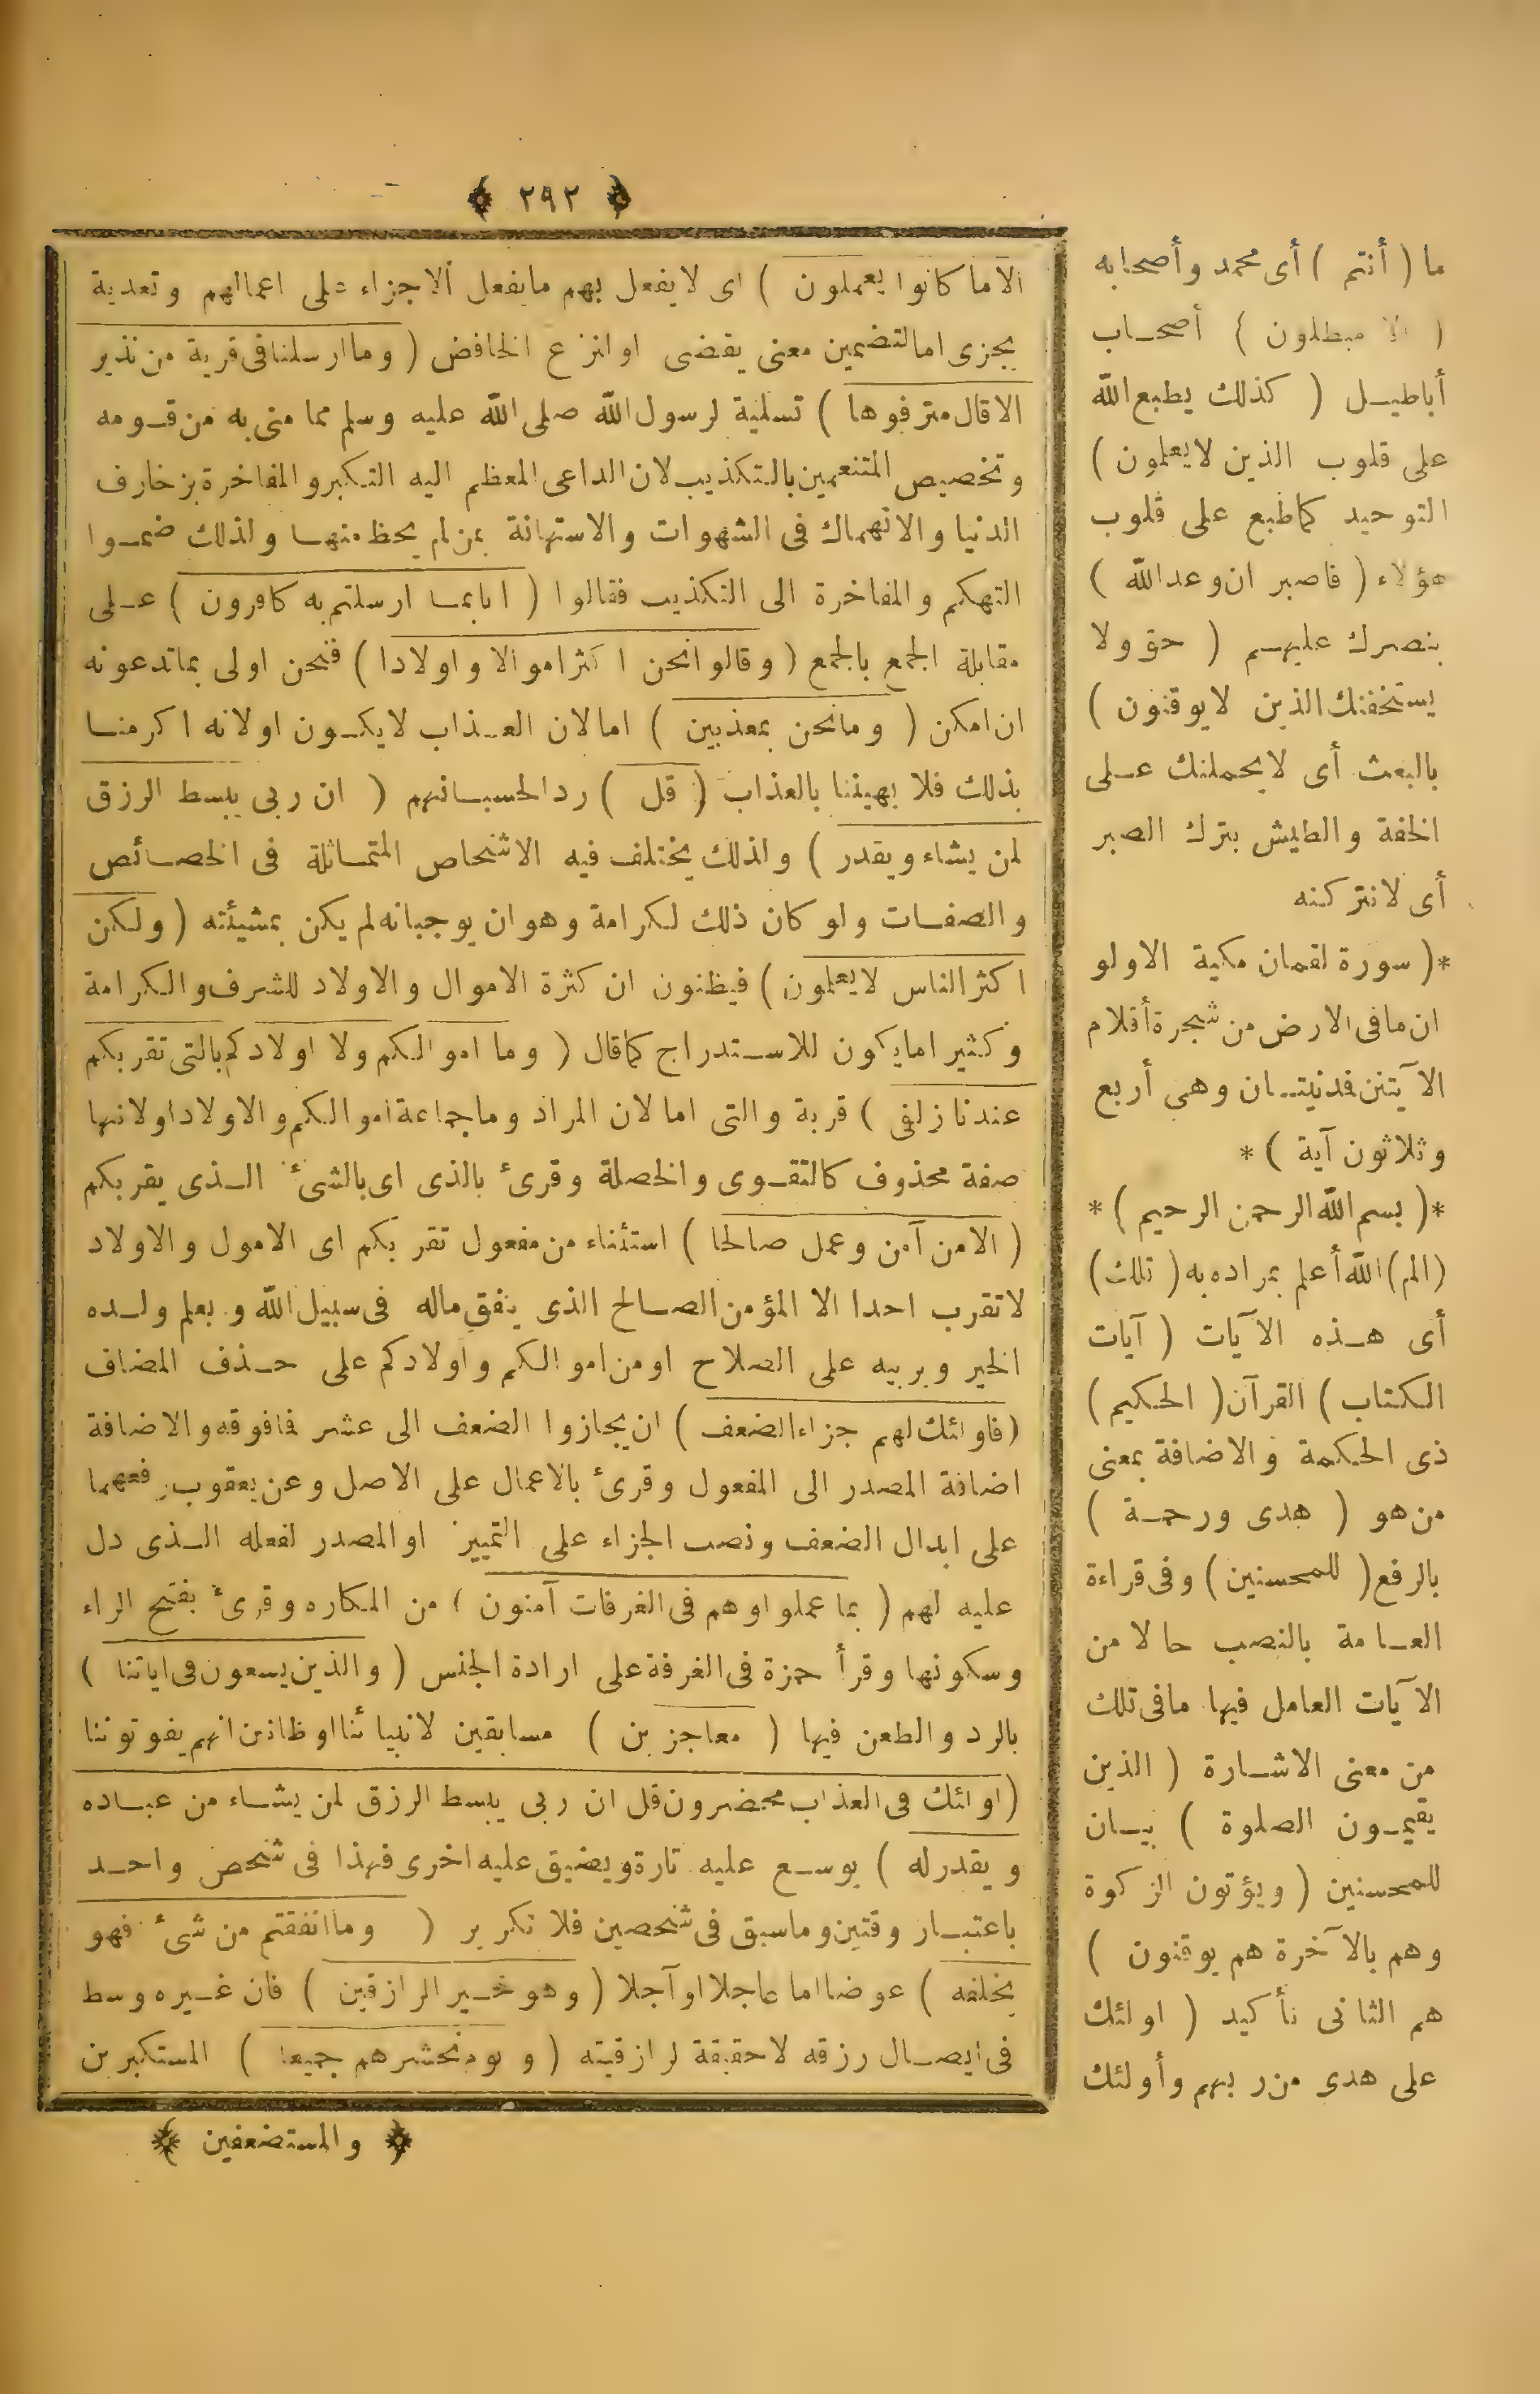 ﴿ ٢٩٢ ﴾
الا ما كانوا يعملون ) اى لا يفعل بهم ما يفعل الا جزاء على اعمالهم وتعدية
يجزى اما لتضمين معنى يقضى او لنزع الخافض ( وما ارسلنا فى قرية من نذير
الا قال مترفوها ) تسلية لرسول الله صلى الله عليه وسلم مما منى به من قومه
وتخصيص المتنعمين بالتكذيب لان الداعى المعظم اليه التكبر والمفاخرة بزخارف
الدنيا والانهماك فى الشهوات والاستهانة بمن لم يحظ منها ولذلك ضموا
التهكم والمفاخرة الى التكذيب فقالوا ( انا بما ارسلتم به كافرون ) على
مقابلة الجمع بالجمع ( وقالوا نحن اكثر اموالا واولادا ) فنحن اولى بما تدعونه
ان امكن ( وما نحن بمعذبين ) اما لان العذاب لا يكون اولانه اكرمنا
بذلك فلا يهيننا بالعذاب ( قل ) ردا لحسبانهم ( ان ربى يبسط الرزق
لمن يشاء ويقدر ) ولذلك يختلف فيه الاشخاص المتماثلة فى الخصائص
والصفات ولو كان ذلك لكرامة وهوان يوجبانه لم يكن بمشيئته ( ولكن
اكثر الناس لا يعلمون ) فيظنون ان كثرة الاموال والاولاد للشرف والكرامة
وكثيرا ما يكون للاستدراج كما قال ( وما اموالكم ولا اولادكم بالتى تقربكم
عندنا زلفى ) قربة والتى اما لان المراد وما جماعة اموالكم والاولاد اولانها
صفة محذوف كالتقوى والخصلة وقرئ بالذى اى بالشئ الذى يقربكم
( الا من آمن وعمل صالحا ) استثناء من مفعول تقربكم اى الامول والاولاد
لا تقرب احدا الا المؤمن الصالح الذى ينفق ماله فى سبيل الله ويعلم ولده
الخير ويربيه على الصلاح او من اموالكم واولادكم على حذف المضاف
( فاولئك لهم جزاء الضعف ) ان يجازوا الضعف الى عشر فما فوقه والاضافة
اضافة المصدر الى المفعول وقرئ بالاعمال على الاصل وعن يعقوب رفعهما
على ابدال الضعف ونصب الجزاء على التمييز او المصدر لفعله الذى دل
عليه لهم ( بما عملوا وهم فى الغرفات آمنون ) من المكاره وقرئ بفتح الراء
وسكونها وقرأ حمزة فى الغرفة على ارادة الجنس ( والذين يسعون فى اياتنا )
بالرد والطعن فيها ( معاجزين ) مسابقين لانبيائنا او ظانين انهم يفوتوننا
( اولئك فى العذاب محضرون قل ان ربى يبسط الرزق لمن يشاء من عباده
ويقدر له ) يوسع عليه تارة ويضيق عليه اخرى فهذا فى شخص واحد
باعتبار وقتين وما سبق فى شخصين فلا تكرير ( وما انفقتم من شئ فهو
يخلفه ) عوضا اما عاجلا او آجلا ( وهو خير الرازقين ) فان غيره وسط
فى ايصال رزقه لا حقيقة لرازقيته ( ويوم نحشرهم جميعا ) المستكبرين
﴿ والمستضعفين ﴾
ما ( أنتم ) أى محمد وأصحابه
( الا مبطلون ) أصحاب
أباطيل ( كذلك يطبع الله
على قلوب الذين لا يعلمون )
التوحيد كما طبع على قلوب
هؤلاء ( فاصبر ان وعد الله )
بنصرك عليهم ( حق ولا
يستخفنك الذين لا يوقنون )
بالبعث أى لا يحملنك على
الخفة والطيش بترك الصبر
أى لا تتركنه
*( سورة لقمان مكية الا ولو
ان ما فى الارض من شجرة أقلام
الآيتين فمدنيتان وهى أربع
وثلاثون آية )*
*( بسم الله الرحمن الرحيم )*
( الم ) الله أعلم بمراده به ( تلك )
أى هذه الآيات ( آيات
الكتاب ) القرآن ( الحكيم )
ذى الحكمة والاضافة بمعنى
من هو ( هدى ورحمة )
بالرفع ( للمحسنين ) وفى قراءة
العامة بالنصب حالا من
الآيات العامل فيها ما فى تلك
من معنى الاشارة ( الذين
يقيمون الصلوة ) بيان
للمحسنين ( ويؤتون الزكوة
وهم بالآخرة هم يوقنون )
هم الثانى تأكيد ( اولئك
على هدى من ربهم وأولئك